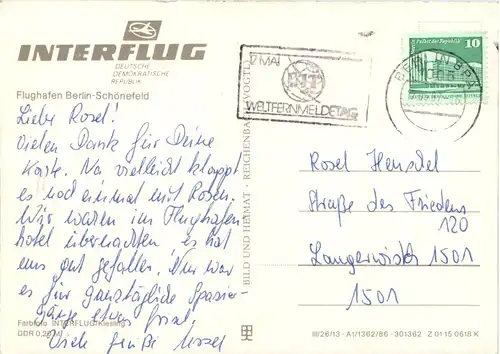 INTERFLUG
DEUTSCHE
DEMOKRATISCHE
REPUBLIK
Flughafen Berlin-Schönefeld
Liebe Rosel!
Vielen Dank für Deine
Karte. Na vielleicht klappt
es noch einmal mit Rosen.
Wir waren im Flughafen
hotel übernachten, es hat
uns gut gefallen. Nur war
es für ganztägliche Spazier-
gänge etwas
Farbfoto INTERFLUG/Kiesling
DDR 0,25 M
Viele Grüße
BILD UND HEIMAT · REICHENBACH (VOGTL)
17. MAI
WELTFERNMELDETAG
Palast der Republik
10
DDR
BERLIN BPA
Rosel Henschel
Straße des Friedens
120
Langerwisch 1501
1501
III/26/13 · A1/1362/86 · 301362 Z 01 15 0618 K